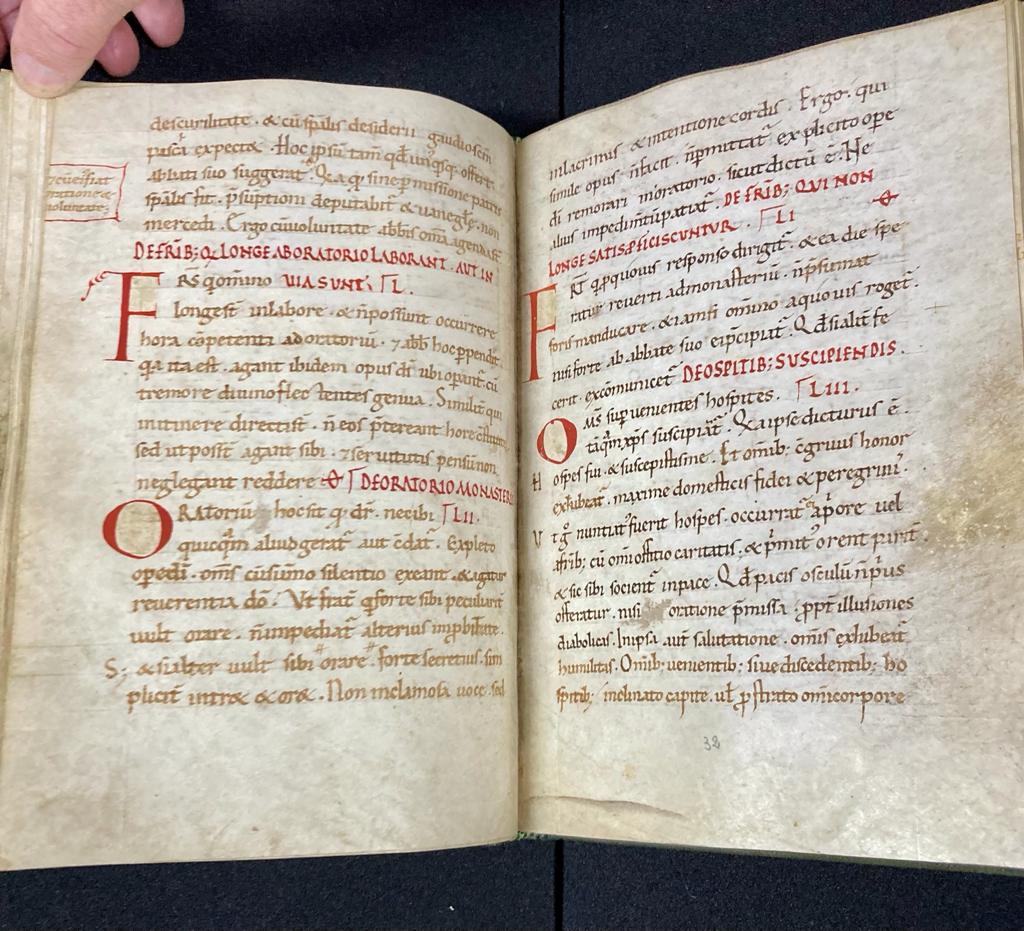 descurilitate . & cū sp̄alis desiderii gaudio scm̄
pascā expect& . Hoc ipsū tam̄ qđ unqsq; offert.
abbati suo suggerat . Q̄a qđ sine p̄missione patris
sp̄alis fit . p̄suptioni deputabit̄ & uanegłę . non
mercedi . Ergo cū uoluntate abbis om̄a agenda st̄
uoluntate
DE FRIB; Q̄ LONGE AB ORATORIO LABORANT . AUT IN
FRS̄ q om̄ino UIA SUNT . L .
longe st̄ in labore . & n̄ possunt occurrere
hora cōpetenti ad oratoriū . 7 abb̄ hoc ꝑpendit .
q̄a ita est . agant ibidem opus dī ubi opant̄ . cū
tremore diuino flectentes genua . Similit̄ qui
in itinere directi st̄ . n̄ eos p̄tereant hore cōstitute
sed ut poss̄t agant sibi . 7 seruitutis pensū non
neglegant reddere DE ORATORIO MONASTERII
ORatoriū hoc sit qđ dr̄ . nec ibi LII .
quicq̄m aliud gerat̄ aut cōdat̄ . Expleto
ope dī . om̄s cū sūmo silentio exeant . & agatur
reuerentia dō . Ut frat̄ q̄ forte sibi peculiarit̄
uult orare . n̄ impediat̄ alterius improbitate .
S; & si alter uult sibi orare forte secretius . sim
plicit̄ intr& & or& . Non in clamosa uoce . sed
in lacrimis & intentione cordis . Ergo . qui
simile opus . n̄ facit . n̄ pmittat̄ explicito ope
dī remorari in oratorio . sicut dictū ē . Ne
alius impedimtū patiat̄ . DE FRIB; QUI NON
LONGE SATIS PFICISCUNTUR . LI
FRT̄ q̄ p̄ quouis responso dirigit̄ . & ea die spe
ratur reuerti ad monasteriū . n̄ p̄sumat
foris manducare . & iamsi om̄ino a quouis roget̄ .
nisi forte ab abbate suo ei p̄cipiat̄ . Qđ si alit̄ fe
cerit excōmunicet̄ DE OSPITIB; SUSCIPIENDIS .
OMs̄ supuenientes hospites . LIII .
tāq̄m xp̄s suscipiāt̄ . Q̄a ipse dicturus ē .
Hospes fui . & suscepistis me . Et om̄ib; cōgruus honor
exhibeat̄ . maxime domesticis fidei & peregrinis .
Ut g̊ nuntiat' fuerit hospes . occurrat̄ a p̄ore uel
a frib; cū om̄i offitio caritatis . & p̄mit' orent parit̄ .
& sic sibi socient̄ in pace . Qđ pacis osculū n̄ p̄us
offeratur . nisi oratione p̄missa . ꝓpt̄ illusiones
diabolicas . In ipsa aut̄ salutatione . om̄is exhibeat̄
humilitas . Om̄ib; uenientib; siue discedentib; ho
spitib; inclinato capite . ul̄ ꝓstrato om̄i corpore
32